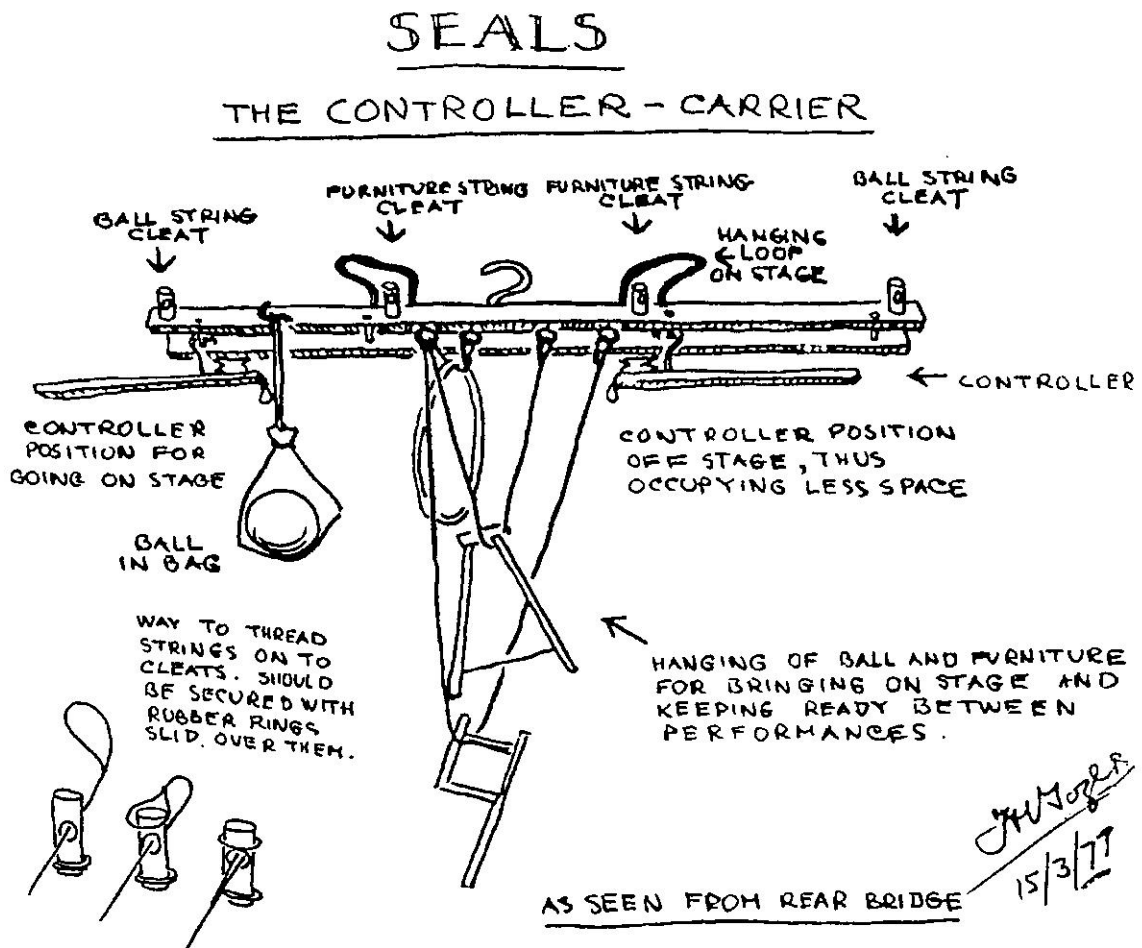 SEALS
THE CONTROLLER - CARRIER
BALL STRING
CLEAT
FURNITURE STRING
CLEAT
FURNITURE STRING
CLEAT
BALL STRING
CLEAT
HANGING
LOOP
ON STAGE
CONTROLLER
CONTROLLER
POSITION FOR
GOING ON STAGE
CONTROLLER POSITION
OFF STAGE, THUS
OCCUPYING LESS SPACE
BALL
IN BAG
WAY TO THREAD
STRINGS ON TO
CLEATS. SHOULD
BE SECURED WITH
RUBBER RINGS
SLID. OVER THEM.
HANGING OF BALL AND FURNITURE
FOR BRINGING ON STAGE AND
KEEPING READY BETWEEN
PERFORMANCES.
15/3/77
AS SEEN FROM REAR BRIDGE